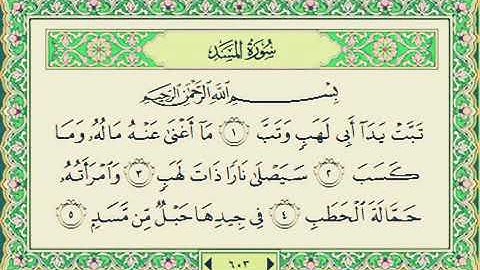 سُورَةُ المَسَدِ
بِسْمِ اللَّهِ الرَّحْمَٰنِ الرَّحِيمِ
تَبَّتْ يَدَآ أَبِى لَهَبٍ وَتَبَّ ١ مَآ أَغْنَىٰ عَنْهُ مَالُهُۥ وَمَا
كَسَبَ ٢ سَيَصْلَىٰ نَارًا ذَاتَ لَهَبٍ ٣ وَٱمْرَأَتُهُۥ
حَمَّالَةَ ٱلْحَطَبِ ٤ فِى جِيدِهَا حَبْلٌ مِّن مَّسَدٍۭ ٥
٦٠٣